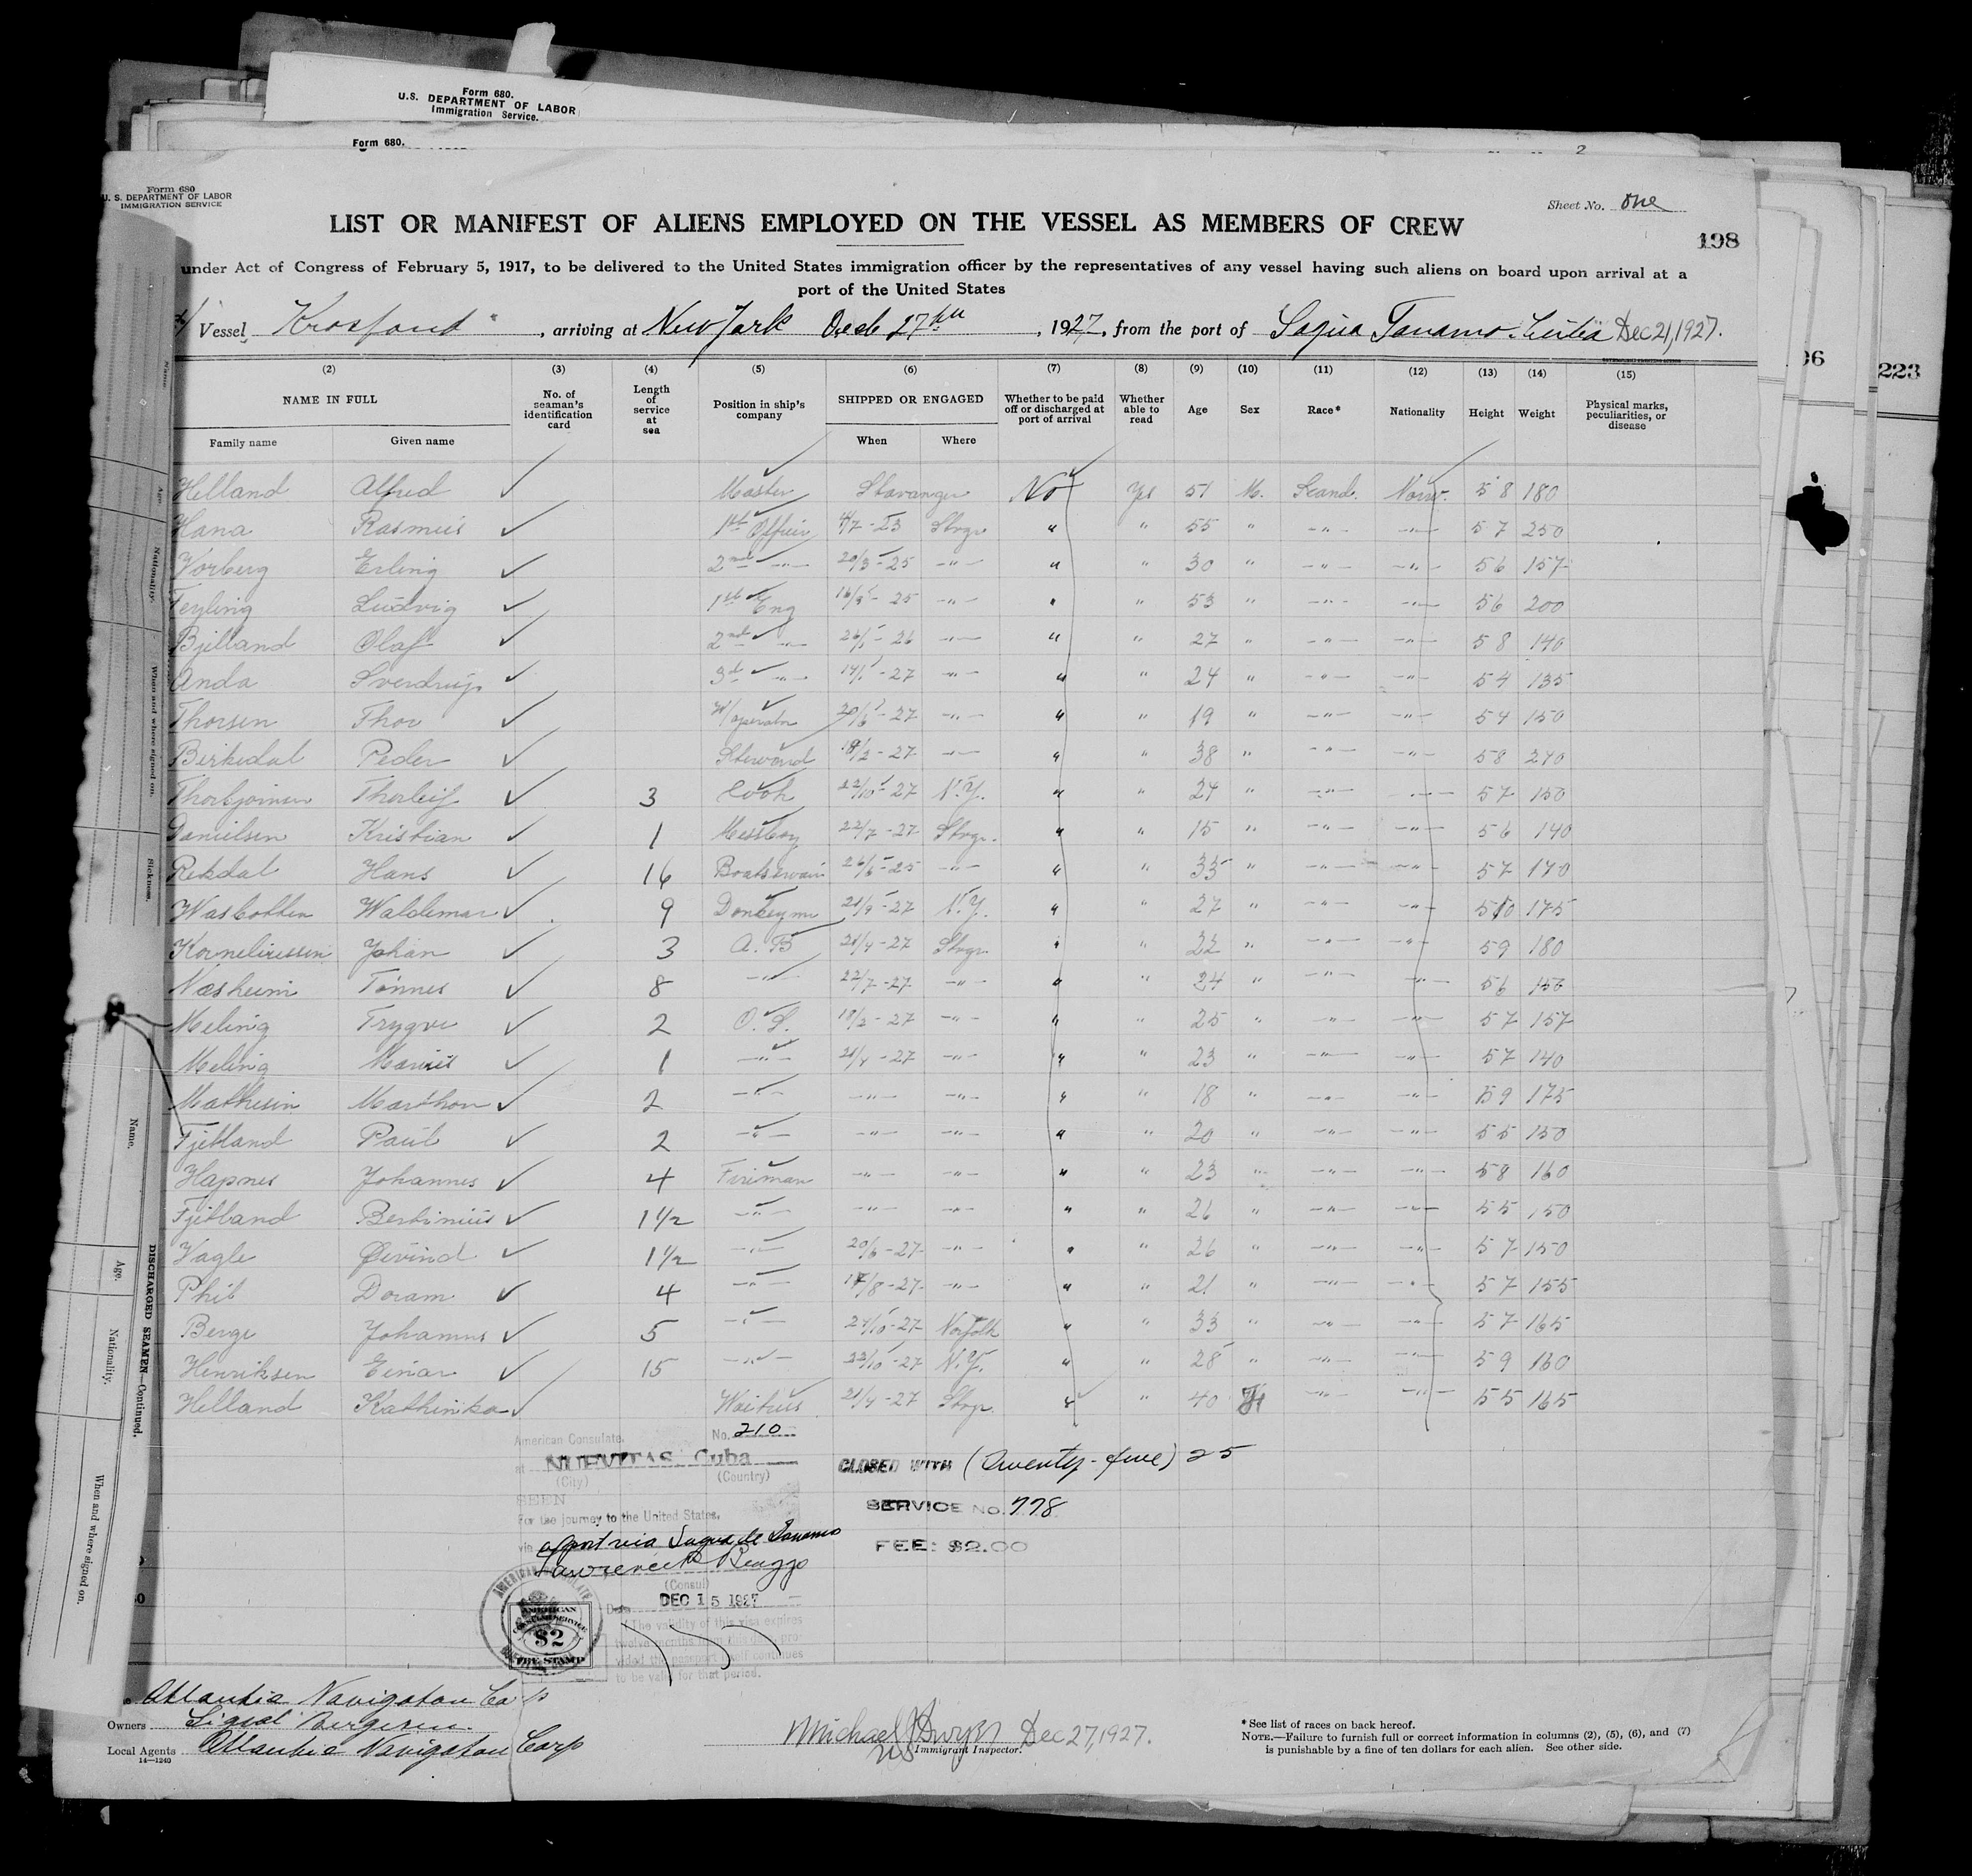 Form 680.
U.S. DEPARTMENT OF LABOR
Immigration Service.
Form 680.
Form 680
U. S. DEPARTMENT OF LABOR
IMMIGRATION SERVICE
Sheet No. One
LIST OR MANIFEST OF ALIENS EMPLOYED ON THE VESSEL AS MEMBERS OF CREW
198
under Act of Congress of February 5, 1917, to be delivered to the United States immigration officer by the representatives of any vessel having such aliens on board upon arrival at a
port of the United States
Vessel Krosfond, arriving at New York Dec 27th, 1927, from the port of Sagua Tanamo. Cuba Dec 21, 1927.
96
223
(2) (3) (4) (5) (6) (7) (8) (9) (10) (11) (12) (13) (14) (15)
NAME IN FULL No. of seaman's identification card Length of service at sea Position in ship's company SHIPPED OR ENGAGED Whether to be paid off or discharged at port of arrival Whether able to read Age Sex Race* Nationality Height Weight Physical marks, peculiarities, or disease
Family name Given name When Where
Helland Alfred Master Stavanger No Yes 51 M. Scand. Norw. 5 8 180
Hana Rasmus 1st Officer 4/7-23 Stvgr " " 55 " -"- -"- 5 7 250
Vorberg Erling 2nd -"- 20/3-25 -"- " " 30 " -"- -"- 5 6 157
Teyling Ludvig 1st Eng 16/3-25 -"- " " 53 " -"- -"- 5 6 200
Bjelland Olaf 2nd -"- 26/1-26 -"- " " 27 " -"- -"- 5 8 140
Anda Sverdrup 3d -"- 14/1-27 -"- " " 24 " -"- -"- 5 4 135
Thorsen Thor W/operator 20/6-27 -"- " " 19 " -"- -"- 5 4 150
Birkedal Peder Steward 18/2-27 -"- " " 38 " -"- -"- 5 8 240
Thorbjørnsen Thorleif 3 Cook 22/10-27 N.Y. " " 24 " -"- -"- 5 7 150
Danielsen Kristian 1 Messboy 22/7-27 Stvgr. " " 15 " -"- -"- 5 6 140
Rekdal Hans 16 Boatswain 26/5-25 -"- " " 35 " -"- -"- 5 7 170
Wasbotten Waldemar 9 Donkeyman 21/9-27 N.Y. " " 27 " -"- -"- 5 10 175
Korneliussen Johan 3 A.B 21/4-27 Stvgr. " " 22 " -"- -"- 5 9 180
Næsheim Tønnes 8 -"- 22/7-27 -"- " " 24 " -"- -"- 5 6 150
Meling Trygve 2 O.S. 18/2-27 -"- " " 25 " -"- -"- 5 7 157
Meling Marius 1 -"- 21/4-27 -"- " " 23 " -"- -"- 5 7 140
Mathisen Marthon 2 -"- -"- -"- " " 18 " -"- -"- 5 9 175
Fjetland Paul 2 -"- -"- -"- " " 20 " -"- -"- 5 5 150
Hapnes Johannes 4 Fireman -"- -"- " " 23 " -"- -"- 5 8 160
Fjetland Bertinius 1 1/2 -"- -"- -"- " " 26 " -"- -"- 5 5 150
Vagle Øivind 1 1/2 -"- 20/6-27 -"- " " 26 " -"- -"- 5 7 150
Phil Doram 4 -"- 17/8-27 -"- " " 21 " -"- -"- 5 7 155
Berge Johannes 5 -"- 27/10-27 Norfolk " " 33 " -"- -"- 5 7 165
Henriksen Einar 15 -"- 22/10-27 N.Y. " " 28 " -"- -"- 5 9 160
Helland Kathinka Waitress 21/4-27 Stvgr " " 40 F -"- -"- 5 5 165
American Consulate, No. 210
at NUEVITAS, Cuba
(City) (Country)
CLOSED WITH (Twenty-five) 25
SEEN
SERVICE NO. 778
For the journey to the United States,
via a port via Sagua de Tanamo
FEE: $2.00
(Consul)
Date DEC 15 1927
The validity of this visa expires
twelve months from this date pro-
vided the passport itself continues
to be valid for that period.
AMERICAN
CONSULAR SERVICE
$2
FEE STAMP
Atlantic Navigaton Corp
Owners Sigval Bergesen.
Local Agents Atlantic Navigaton Corp
14—1240
Michael J Dwyer Dec 27, 1927.
Immigrant Inspector.
* See list of races on back hereof.
NOTE.—Failure to furnish full or correct information in columns (2), (5), (6), and (7)
is punishable by a fine of ten dollars for each alien. See other side.
Name.
Age.
Nationality.
When and where signed on.
Sickness.
DISCHARGED SEAMEN—Continued.
Name.
Age.
Nationality.
When and where signed on.